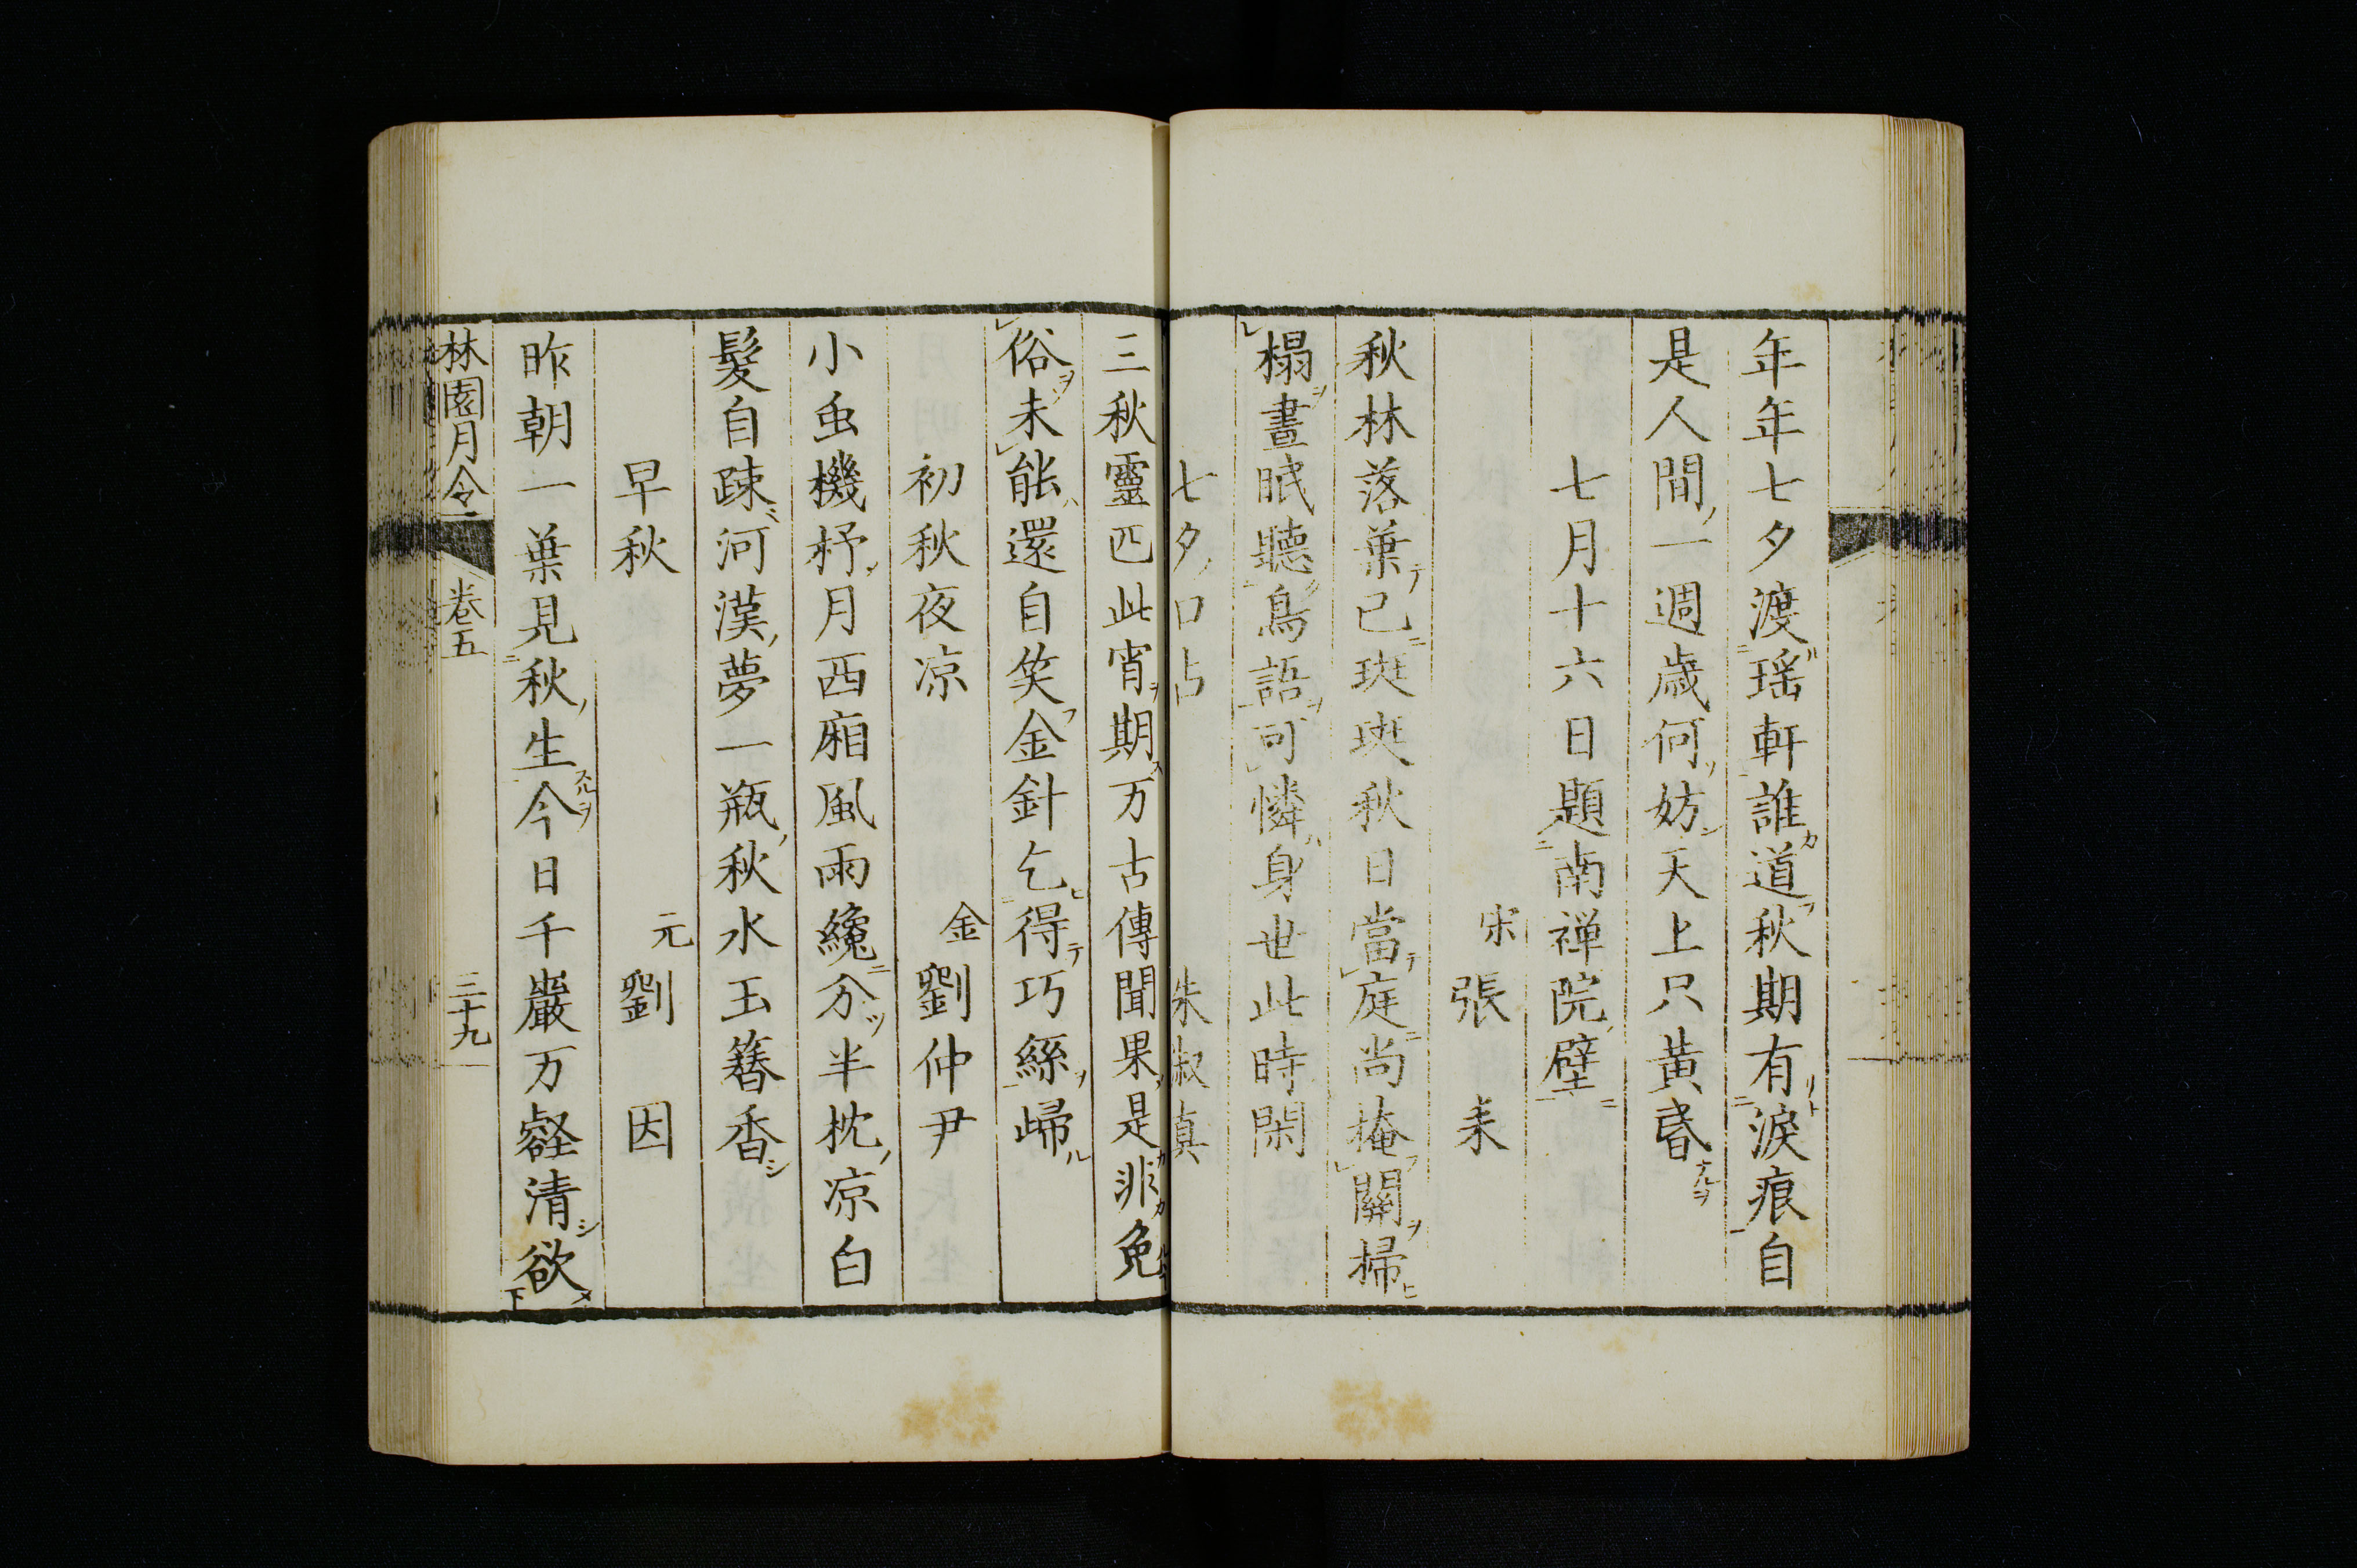 年年七夕渡瑶軒誰道秋期有淚痕自
是人間一週歳何妨天上只黃昏
七月十六日題南禅院壁
宋張耒
秋林落葉已斑斑秋日當庭尚掩關掃
榻晝眠聽鳥語可憐身世此時閑
七夕口占 朱淑真
三秋靈匹此宵期万古傳聞果是非免
俗未能還自笑金針乞得巧絲歸
初秋夜凉 金劉仲尹
小虫機杼月西廂風雨纔分半枕凉白
髮自疎河漢夢一瓶秋水玉簪香
早秋 元劉因
昨朝一葉見秋生今日千巖万壑清欲
林園月令 卷五 三十九